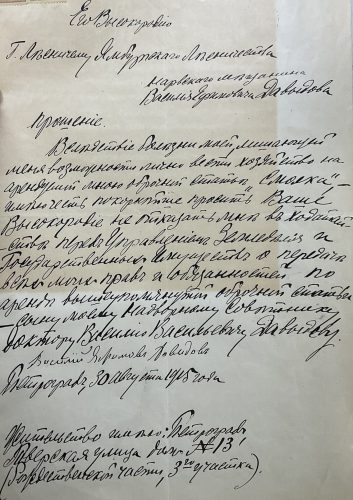 Его Высокородію
Г. Лѣсничему Ямбургскаго Лѣсничества
нарвскаго мѣщанина
Василія Ефимовича Давыдова
Прошеніе.
Вслѣдствіе болѣзни моей, лишающей
меня возможности лично вести хозяйство на
арендуемой мною оброчной статьѣ „Смолка",
имѣю честь покорнѣйше просить Ваше
Высокородіе не отказать мнѣ въ ходатай-
ствѣ предъ Управленіемъ Земледѣлія и
Государственныхъ Имуществъ о передачѣ
всѣхъ моихъ правъ и обязанностей по
арендѣ вышеупомянутой оброчной статьи
– сыну моему Надворному Совѣтнику
доктору Василію Васильевичу Давыдову.
Василій Давыдовъ
Петроградъ, 30 Августа 1915 года
Жительство имѣю: Петроградъ
Тверская улица домъ № 13
(Рождественской части, 3го участка).